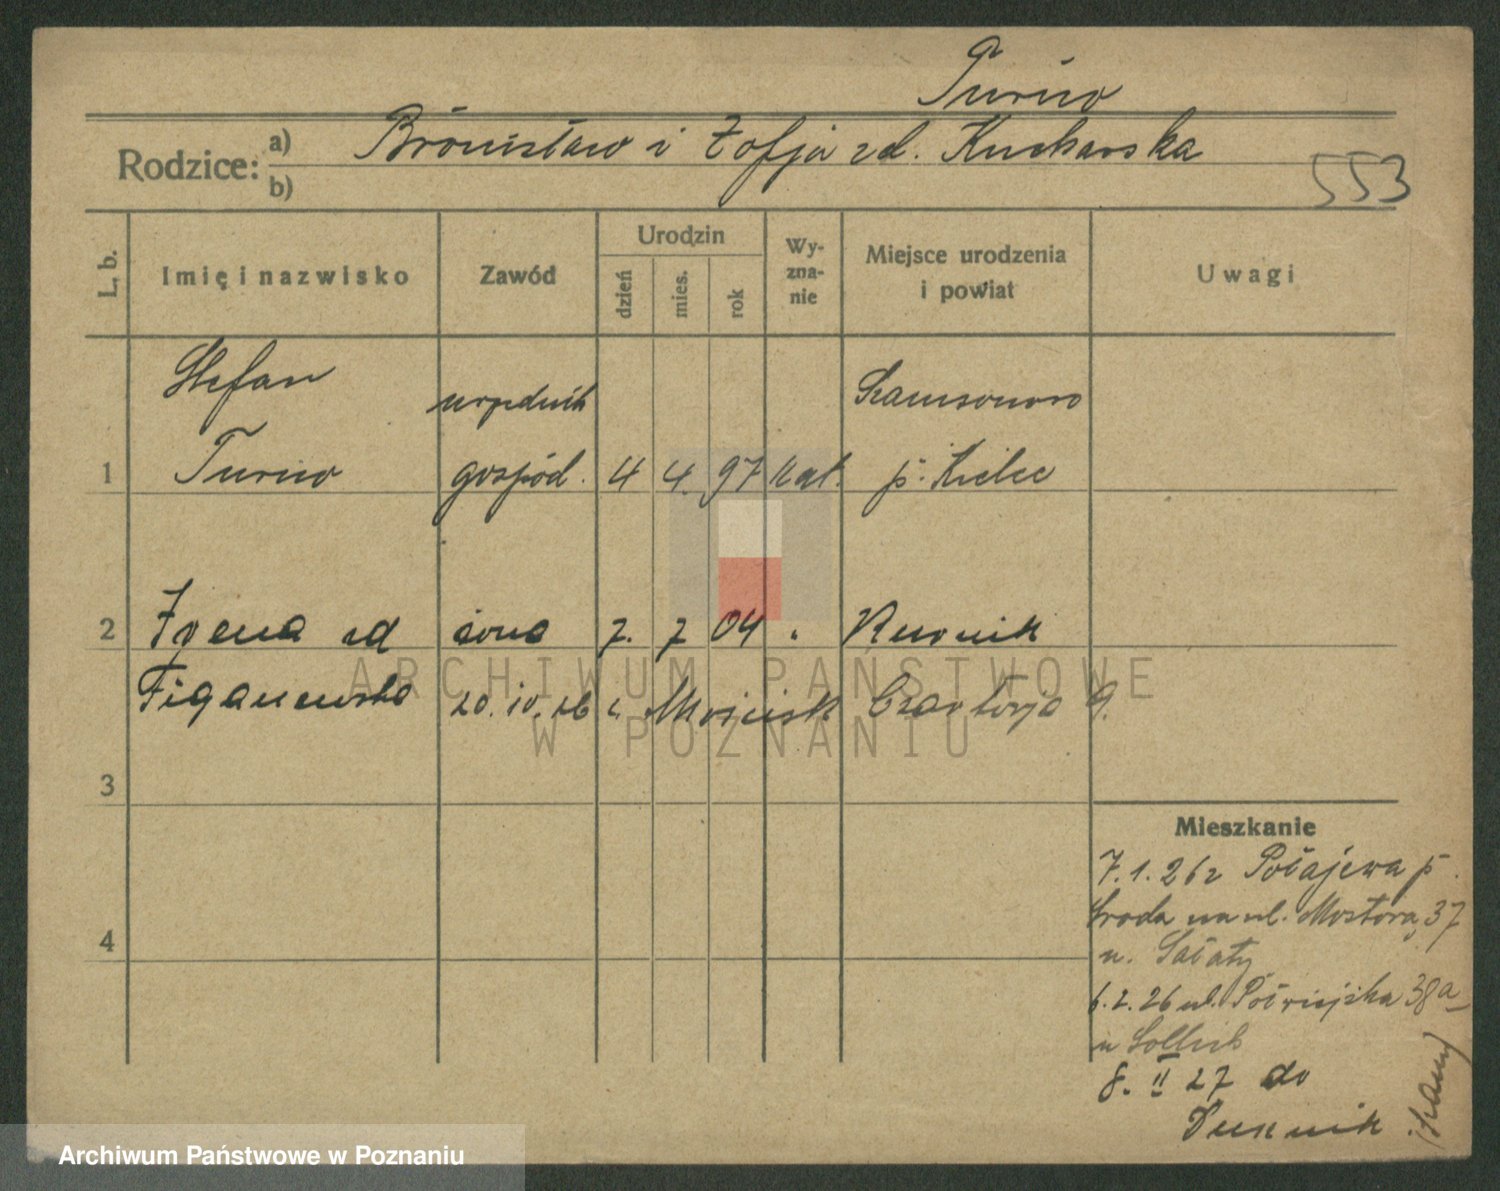 Turno
Rodzice: a) Bronisław i Zofja zd. Kucharska
b)
553
L. b.
Imię i nazwisko
Zawód
Urodzin
dzień
mies.
rok
Wy-
zna-
nie
Miejsce urodzenia
i powiat
Uwagi
Stefan
urzędnik
Szamsonowo
1 Turno gospod. 4 4. 97 kat. p. Kielce
2 Irena zd żona 7. 7 04 " Kurnik
20. IV. 26 Czartorja
3
4
Mieszkanie
7.1.26 z Połajewa p.
Środa na ul. Mostową 37
u. Sałaty
6.2.26 ul. Półwiejska 38a
u
8. II 27 do
ARCHIWUM PAŃSTWOWE
W POZNANIU
Archiwum Państwowe w Poznaniu